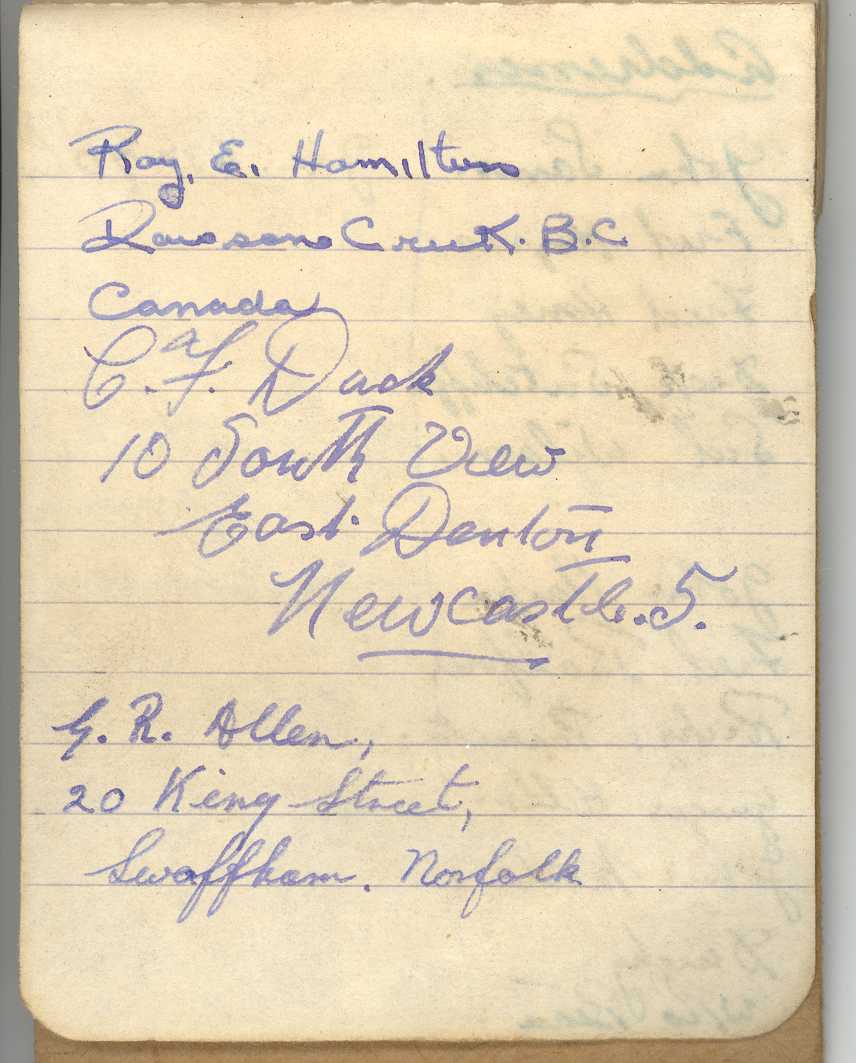 Ray. E. Hamilton
Dawson Creek. B.C
Canada
C. F. Dack
10 South View
East Denton
Newcastle. 5.
G. R. Allen,
20 King Street,
Swaffham. Norfolk